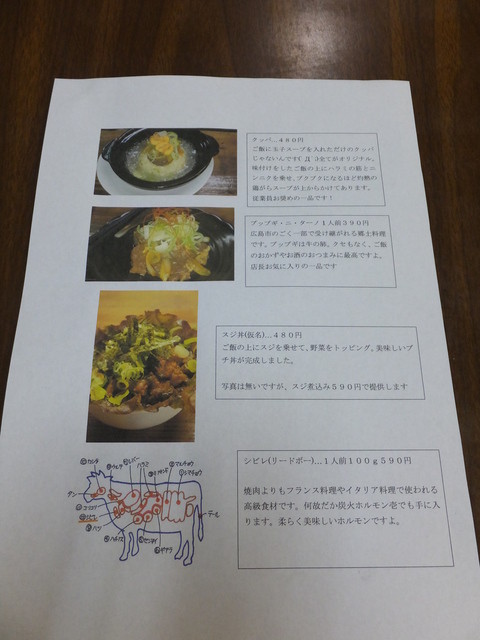 クッパ…４８０円
ご飯に玉子スープを入れただけのクッパ
じゃないんです(゚Д゚)全てがオリジナル。
味付けをしたご飯の上にハラミの筋とニ
ンニクを乗せ、ブクブクになるほど灼熱の
鍋がらスープが上からかけてあります。
従業員お奨めの一品です！
プップギ・ニ・ターノ１人前３９０円
広島市のごく一部で受け継がれる郷土料理
です。プップギは牛の肺。クセもなく、ご飯
のおかずやお酒のおつまみに最高ですよ。
店長お気に入りの一品です
スジ丼(仮名)…４８０円
ご飯の上にスジを乗せて、野菜をトッピング、美味しいプ
チ丼が完成しました。
写真は無いですが、スジ煮込み５９０円で提供します
シビレ(リードボー)…１人前１００ｇ５９０円
焼肉よりもフランス料理やイタリア料理で使われる
高級食材です。何故だか炭火ホルモン壱でも手に入
ります。柔らく美味しいホルモンですよ。
レバー
ハラミ
タン
ハツ
テール